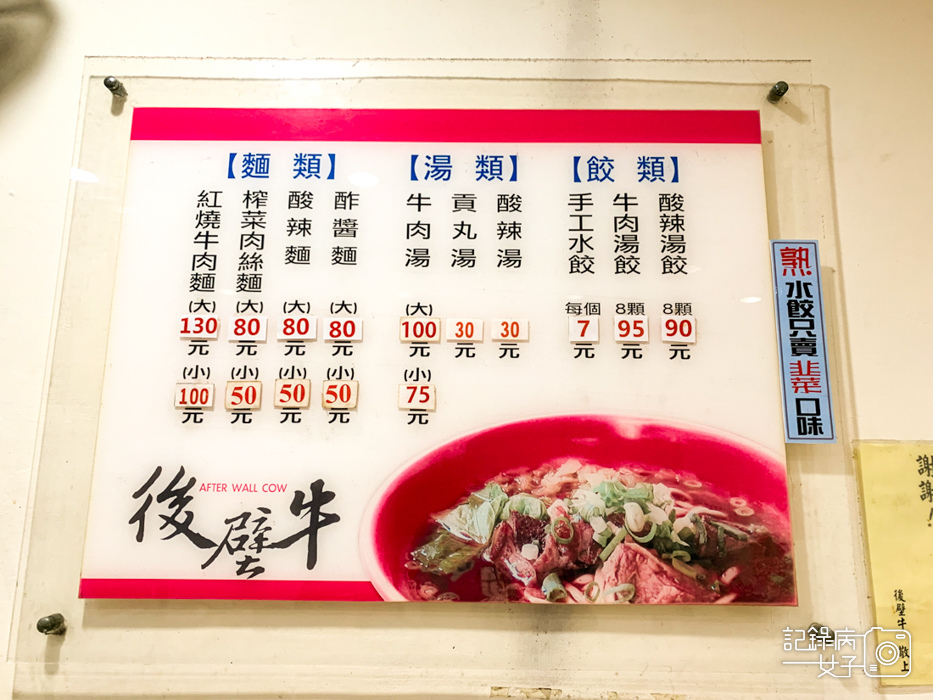 【麵 類】
紅燒牛肉麵 (大) 130元 (小) 100元
榨菜肉絲麵 (大) 80元 (小) 50元
酸辣麵 (大) 80元 (小) 50元
酢醬麵 (大) 80元 (小) 50元
【湯 類】
牛肉湯 (大) 100元 (小) 75元
貢丸湯 30元
酸辣湯 30元
【餃 類】
手工水餃 每個 7元
牛肉湯餃 8顆 95元
酸辣湯餃 8顆 90元
後壁牛
AFTER WALL COW
熟.水餃只賣韭菜口味
謝謝!
後壁牛 敬上
記錄病
女子